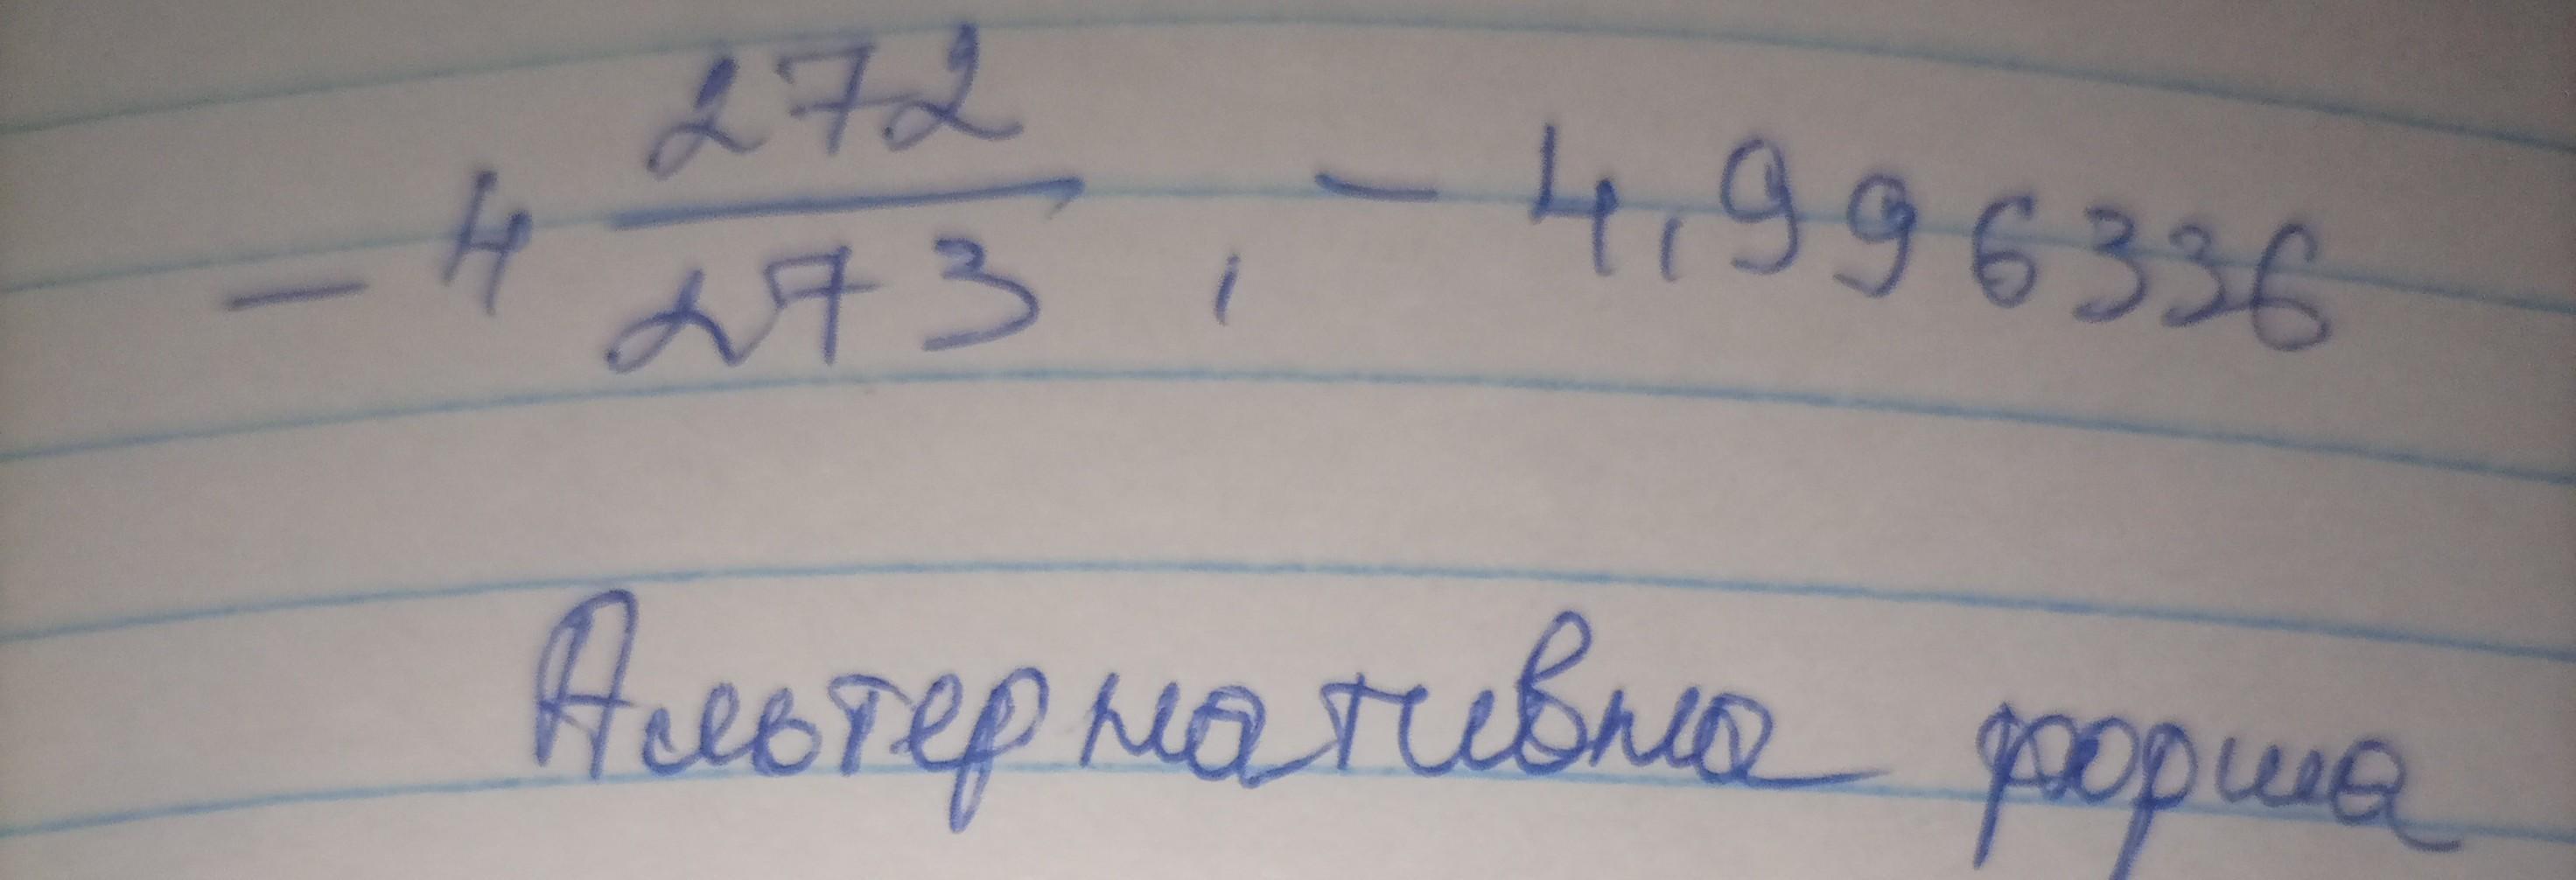 -4 272/273, -4,996336
Альтернативна форма